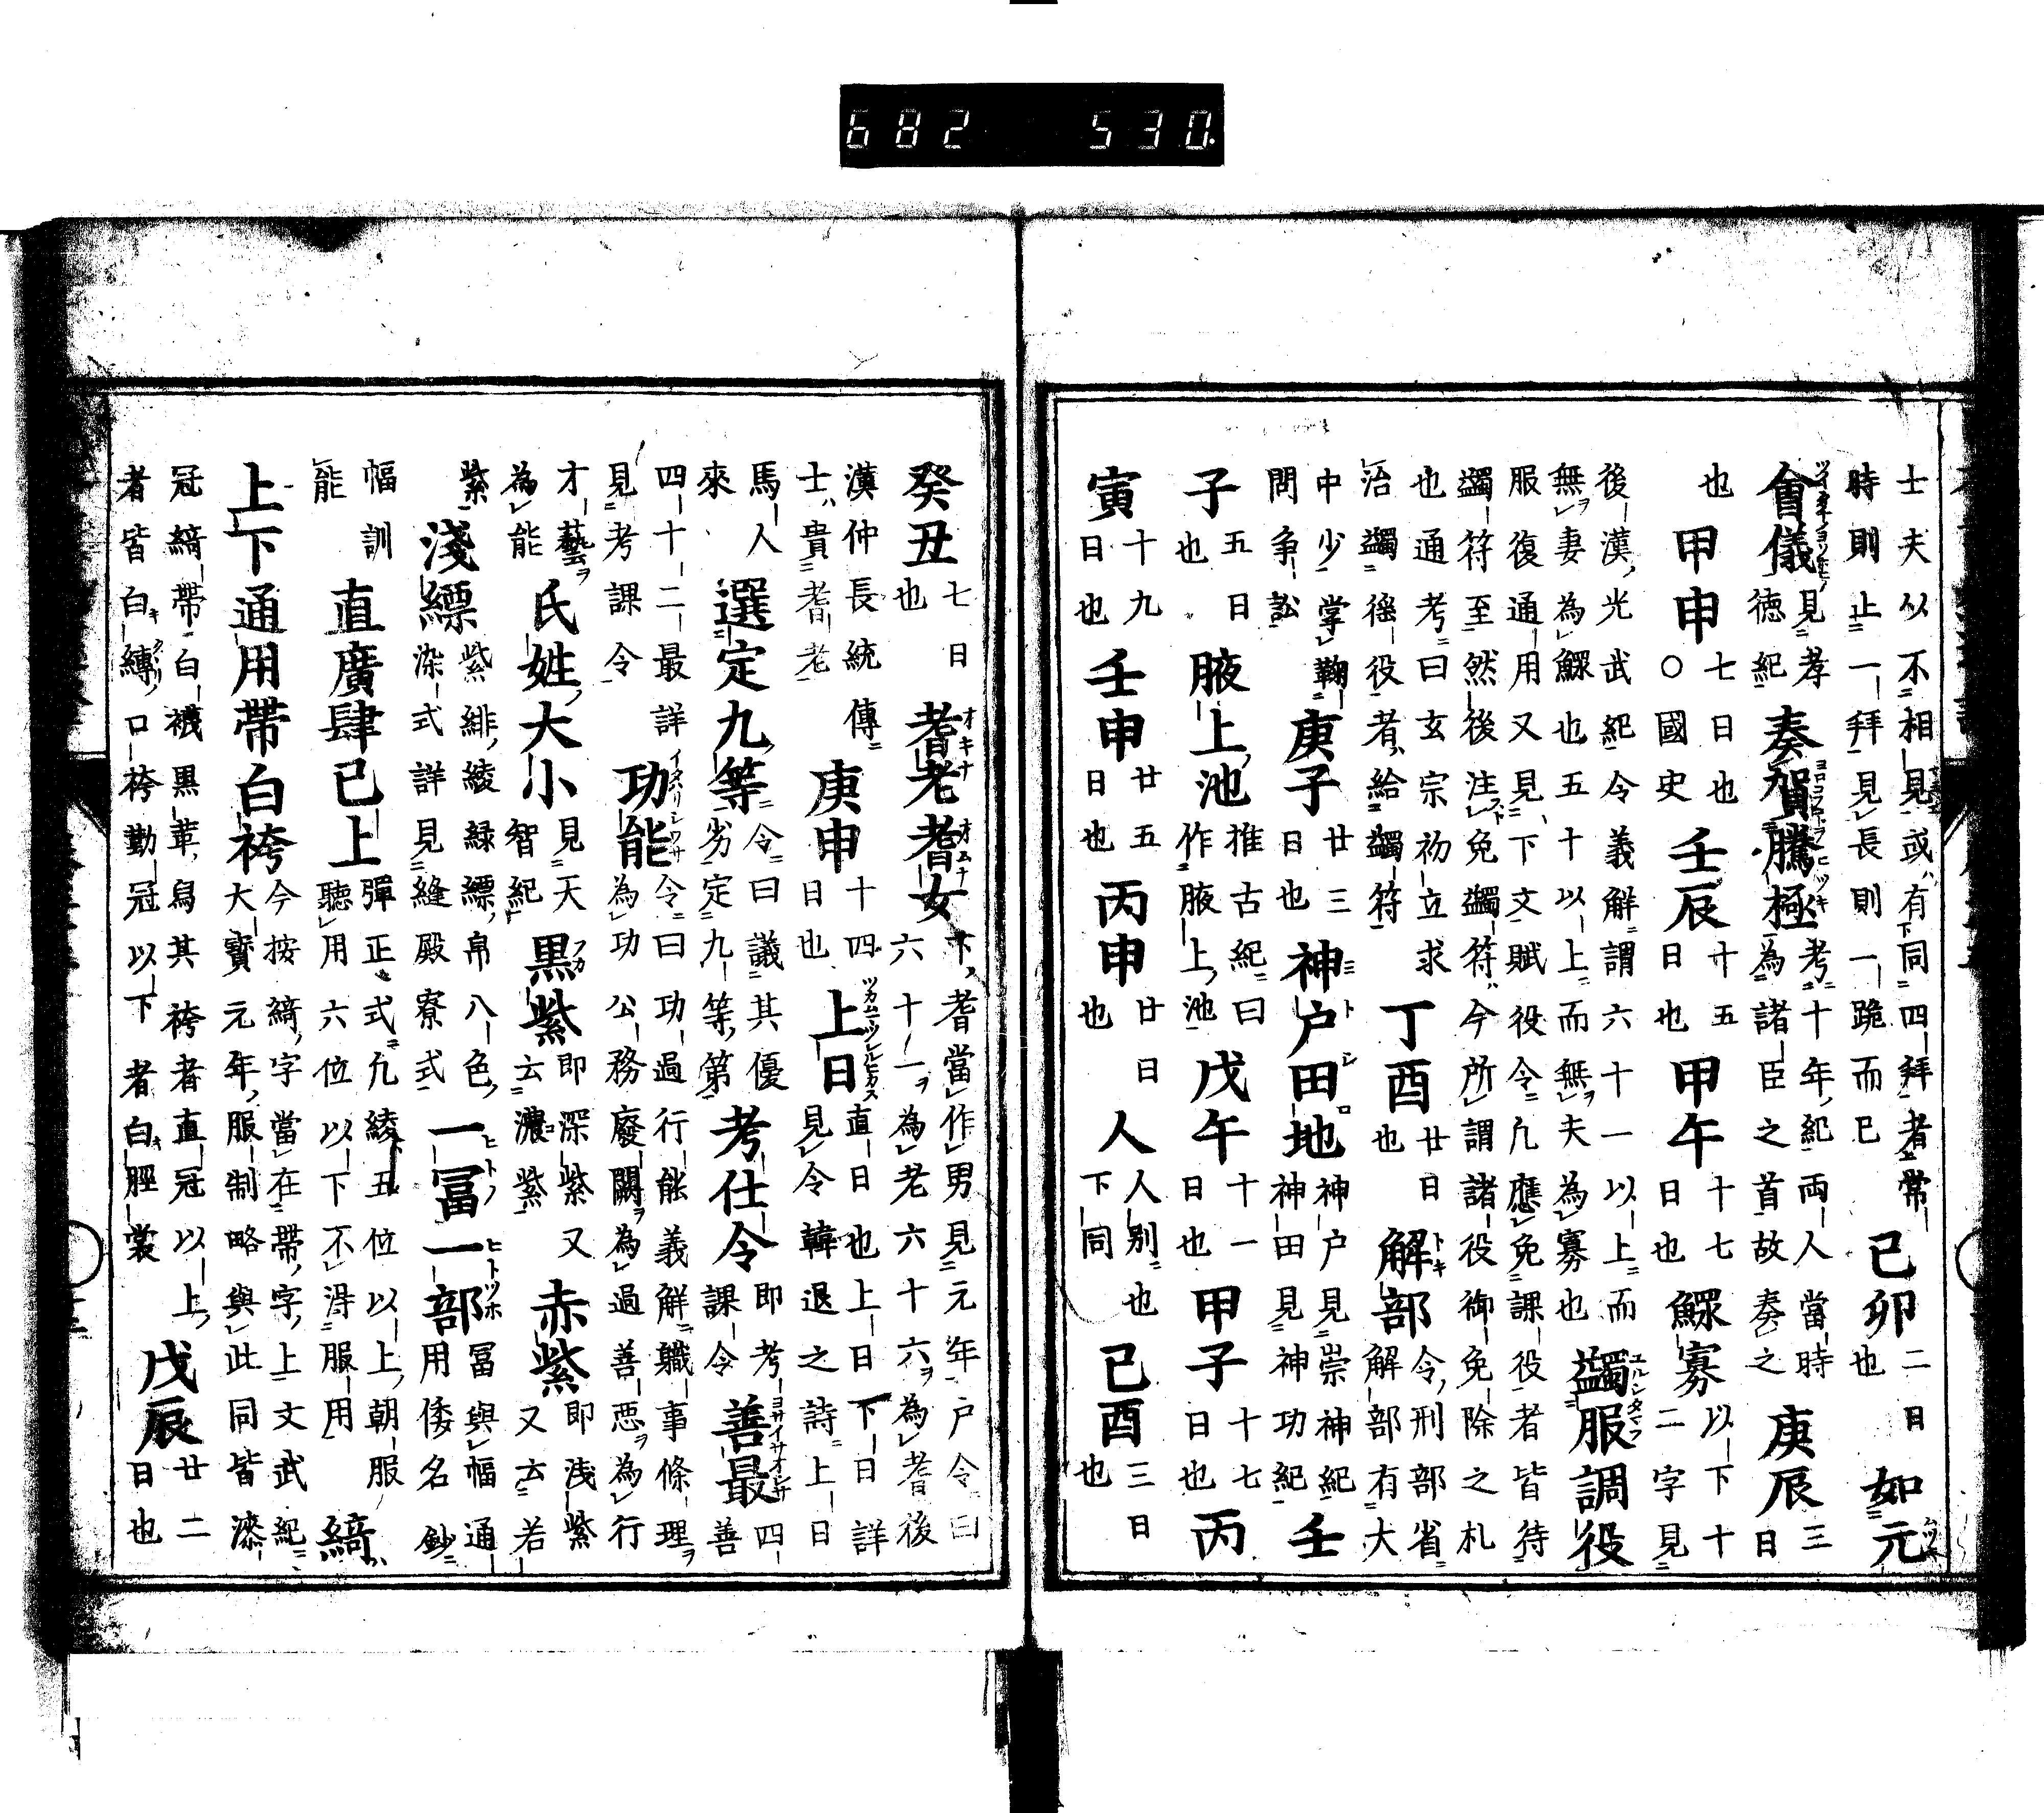 682 530
士夫以不相見或有同四拜者常
時則止一拜見長則一跪而已
己卯
二日
也
如元
會儀
見孝
徳紀
奏賀騰極
考十年紀両人當時
為諸臣之首故奏之
庚辰
三
日
也
甲申
七日也
○國史
壬辰
十五
日也
甲午
十七
日也
鰥寡
以下十
二字見
後漢光武紀令義解謂六十一以上而
無妻為鰥也五十以上而無夫為寡也
蠲服調役
服復通用又見下文賦役令凡應免課役者皆待
蠲符至然後注免蠲符今所謂諸役御免除之札
也通考曰玄宗初立求
治蠲徭役者給蠲符
丁酉
廿日
也
解部
令刑部省
解部有大
中少掌鞫
問争訟
庚子
廿三
日也
神戸田地
神戸見崇神紀
神田見神功紀
壬
子
五日
也
腋上池
推古紀曰
作腋上池
戊午
十一
日也
甲子
十七
日也
丙
寅
十九
日也
壬申
廿五
日也
丙申
廿日
也
人人
人別也
下同
己酉
三日
也
癸丑
七日
也
耆老耆女
下耆當作男見元年戸令曰
六十一為老六十六為耆後
漢仲長統傳
士貴耆老
庚申
十四
日也
上日
直日也上日下日詳
見令韓退之詩上日
馬人
來
選定九等
令曰議其優
劣定九等第
考仕令
即考
課令
善最
四
善
四十二最詳
見考課令
功能
令曰功過行能義解職事條理
為功公務廢闕為過善悪為行
才藝
為能
氏姓大小
見天
智紀
黒紫
即深紫又
云濃紫
赤紫
即浅紫
又云若
紫
淺縹
紫緋綾緑縹帛八色
染式詳見縫殿寮式
一冨一部
冨與幅通
用倭名鈔
幅訓
能
直廣肆已上
彈正式凡綾五位以上朝服
聽用六位以下不得服用
綺
上下通用帶白袴
今按綺字當在帶字上文武紀
大寶元年服制略與此同皆漆
冠綺帶白襪黒革舄其袴者直冠以上
者皆白縛口袴勤冠以下者白脛裳
戊辰
廿二
日也